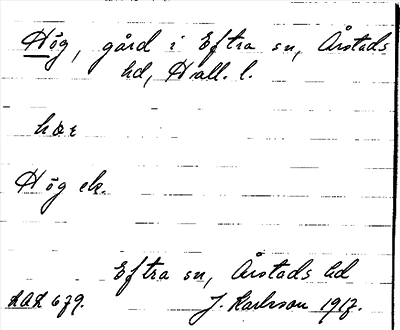 Hög, gård i Eftra sn, Årstads
hd, Hall. l.
Hög ek.
Eftra sn, Årstads hd
J. Karlsson 1917.